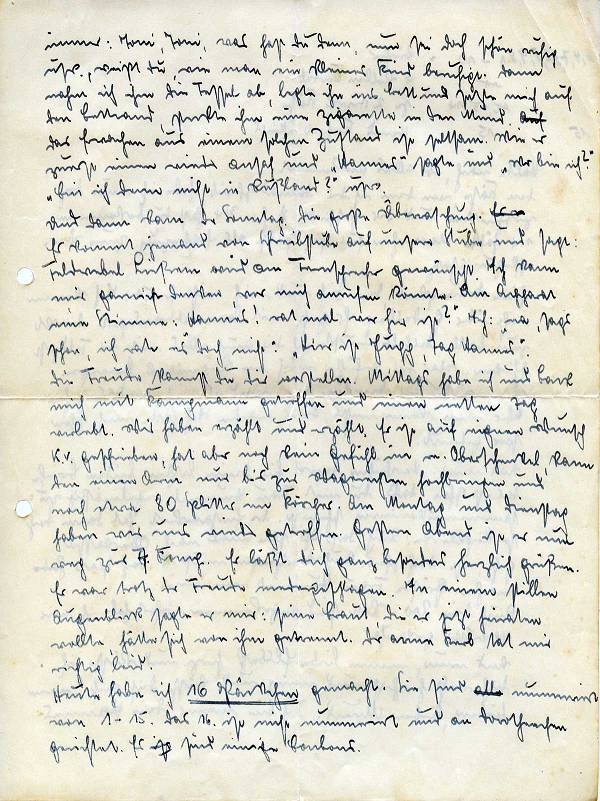 immer: Toni, Toni, was hast du denn, nun sei doch schön ruhig
usw., weißt du, wie man ein kleines Kind beruhigt. Dann
nahm ich ihm die Fessel ab, legte ihn ins Bett und setzte mich auf
den Bettrand, steckte ihm eine Zigarette in den Mund. auf
das Erwachen aus einem solchen Zustand ist seltsam. Wie er
zuerst einen wieder ansah und „Hannes“ sagte und „Wo bin ich?“
„Bin ich denn nicht in Rußland?“ usw.
Und dann kam der Sonntag, die große Überraschung. Es
Es kommt jemand von Schreibstube auf unsere Stube und sagt:
Feldwebel wird am Fernsprecher gewünscht. Ich kann
mir garnicht denken, wer mich anrufen könnte. Am Apparat
eine Stimme: Hannes! rat mal wer hier ist?“ Ich: „na, sags
schon, ich rate es doch nicht“. „Hier ist , Tag Hannes“.
Die Freude kannst Du dir vorstellen. Mittags habe ich und
mich mit Kampmann getroffen und einen netten Tag
verlebt. Wir haben erzählt und erzählt. Er ist auf eigenen Wunsch
k.v. geschrieben, hat aber noch kein Gefühl im re. Oberschenkel, kann
den einen Arm nur bis zur Wagerechten hochbringen und
noch etwa 80 Splitter im Körper. Am Montag und Dienstag
haben wir uns wieder getroffen. Gestern Abend ist er nun
weg zur Komp. Er läßt dich ganz besonders herzlich grüßen.
Er war trotz der Freude niedergeschlagen. In einem stillen
Augenblick sagte er mir: seine Braut, die er jetzt heiraten
wollte, hätte sich von ihm getrennt. Der arme Kerl tat mir
richtig leid.
Heute habe ich 16 Päckchen gemacht. Sie sind alle nummeriert
von 1-15. Das 16. ist nicht nummeriert und an Dorothechen
gerichtet. Es ist sind einige Bonbons.